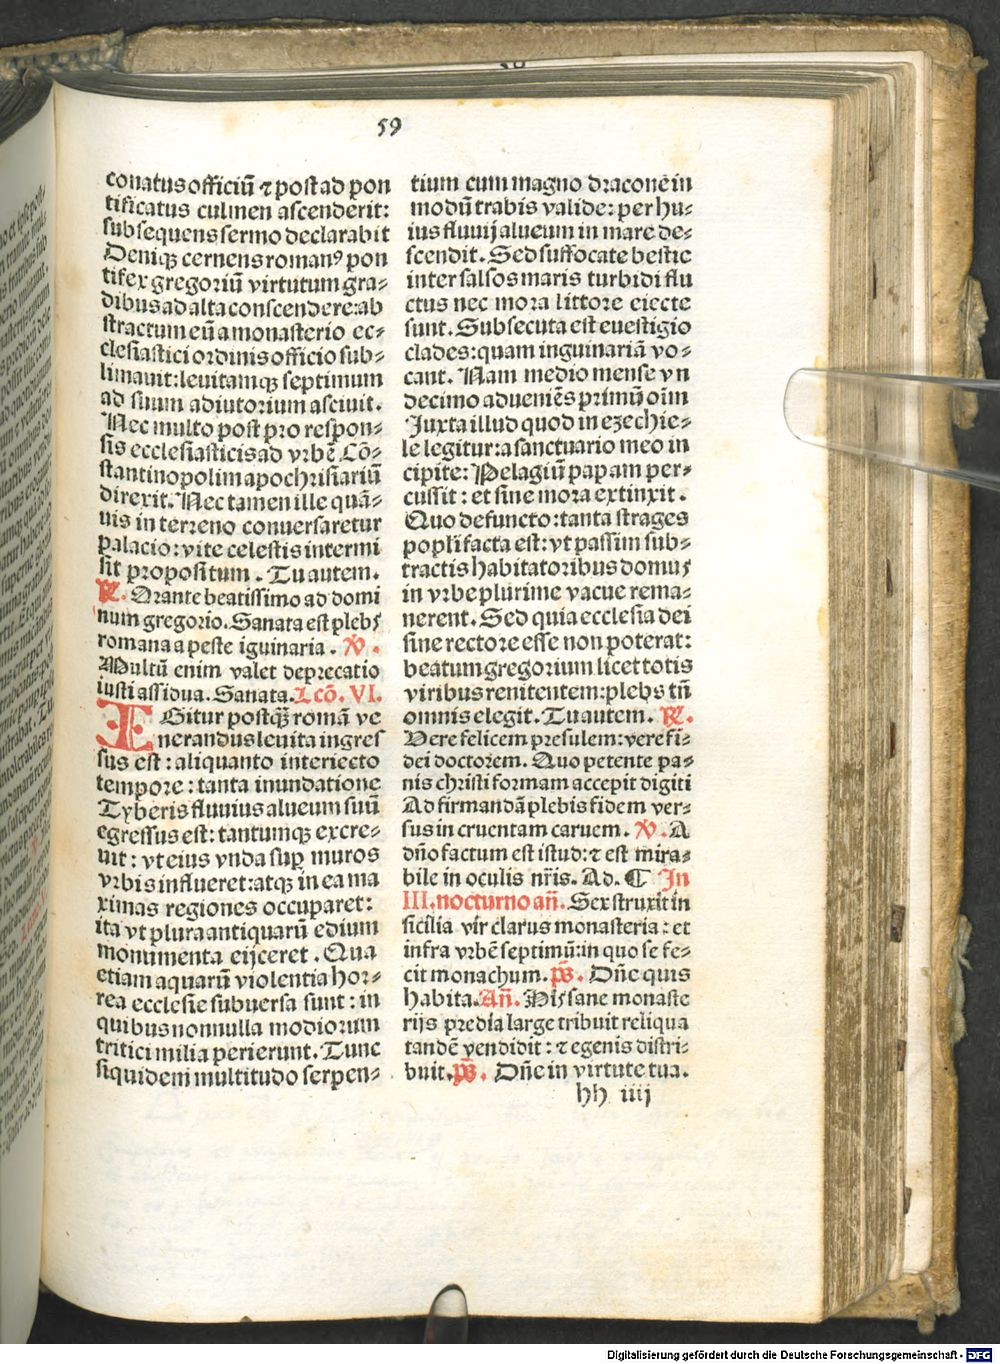 59
conatus officiū ⁊ post ad pon
tificatus culmen ascenderit:
subsequens sermo declarabit
Deniqꝫ cernens romanꝰ pon
tifex gregoriū virtutum gra⸗
dibus ad alta conscendere: ab
stractum eū a monasterio ec⸗
clesiastici ordinis officio sub⸗
limauit: leuitamqꝫ septimum
ad suum adiutorium asciuit.
Nec multo post pro respon⸗
sis ecclesiasticis ad vrbē Cō⸗
stantinopolim apochrisiariū
direxit. Nec tamen ille quā⸗
uis in terreno conuersaretur
palacio: vite celestis intermi
sit propositum. Tu autem.
℟. Orante beatissimo ad domi
num gregorio. Sanata est plebs
romana a peste iguinaria. ℣.
Multū enim valet deprecatio
iusti assidua. Sanata. Lcō. VI.
IGitur postqꝫ̄ romā ve
nerandus leuita ingres
sus est: aliquanto interiecto
tempore: tanta inundatione
Tyberis fluuius alueum suū
egressus est: tantumqꝫ excre⸗
uit: vt eius vnda sup muros
vrbis influeret: atqꝫ in ea ma
ximas regiones occuparet:
ita vt plura antiquarū edium
monumenta eijceret. Qua
etiam aquarū violentia hor⸗
rea ecclesie subuersa sunt: in
quibus nonnulla modiorum
tritici milia perierunt. Tunc
siquidem multitudo serpen⸗
tium cum magno dracone in
modū trabis valide: per hu⸗
ius fluuij alueum in mare de⸗
scendit. Sed suffocate bestie
inter salsos maris turbidi flu
ctus nec mora littore eiecte
sunt. Subsecuta est euestigio
clades: quam inguinariā vo⸗
cant. Nam medio mense vn
decimo adueniēs primū oīm
Juxta illud quod in ezechie⸗
le legitur: a sanctuario meo in
cipite: Pelagiū papam per⸗
cussit: et sine mora extinxit.
Quo defuncto: tanta strages
popli facta est: vt passim sub⸗
tractis habitatoribus domus
in vrbe plurime vacue rema⸗
nerent. Sed quia ecclesia dei
sine rectore esse non poterat:
beatum gregorium licet totis
viribus renitentem: plebs tn̄
omnis elegit. Tu autem. ℟.
Vere felicem presulem: vere fi⸗
dei doctorem. Quo petente pa⸗
nis christi formam accepit digiti
Ad firmandā plebis fidem ver⸗
sus in cruentam carnem. ℣. A
dn̄o factum est istud: ⁊ est mira⸗
bile in oculis nr̄is. Ad. ¶ In
III. nocturno an̄. Sex struxit in
sicilia vir clarus monasteria: et
infra vrbē septimū: in quo se fe⸗
cit monachum. p̄s. Dn̄e quis
habita. An̄. His sane monaste
rijs predia large tribuit reliqua
tandē vendidit: ⁊ egenis distri⸗
buit. p̄s. Dn̄e in virtute tua.
hh iiij
Digitalisierung gefördert durch die Deutsche Forschungsgemeinschaft - DFG